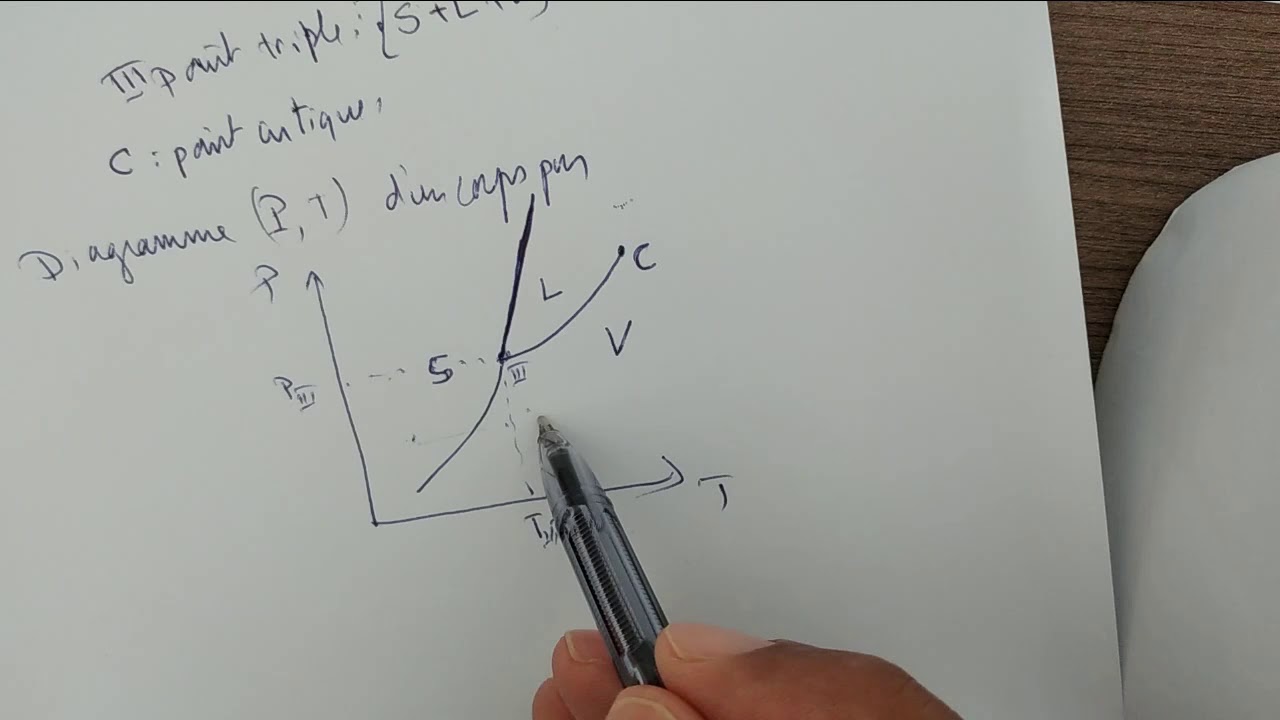 III point triple: {S+L+
C: point critique.
Diagramme (P, T) d'un corps pur
P
C
L
V
S
III
PIII
T
TIII